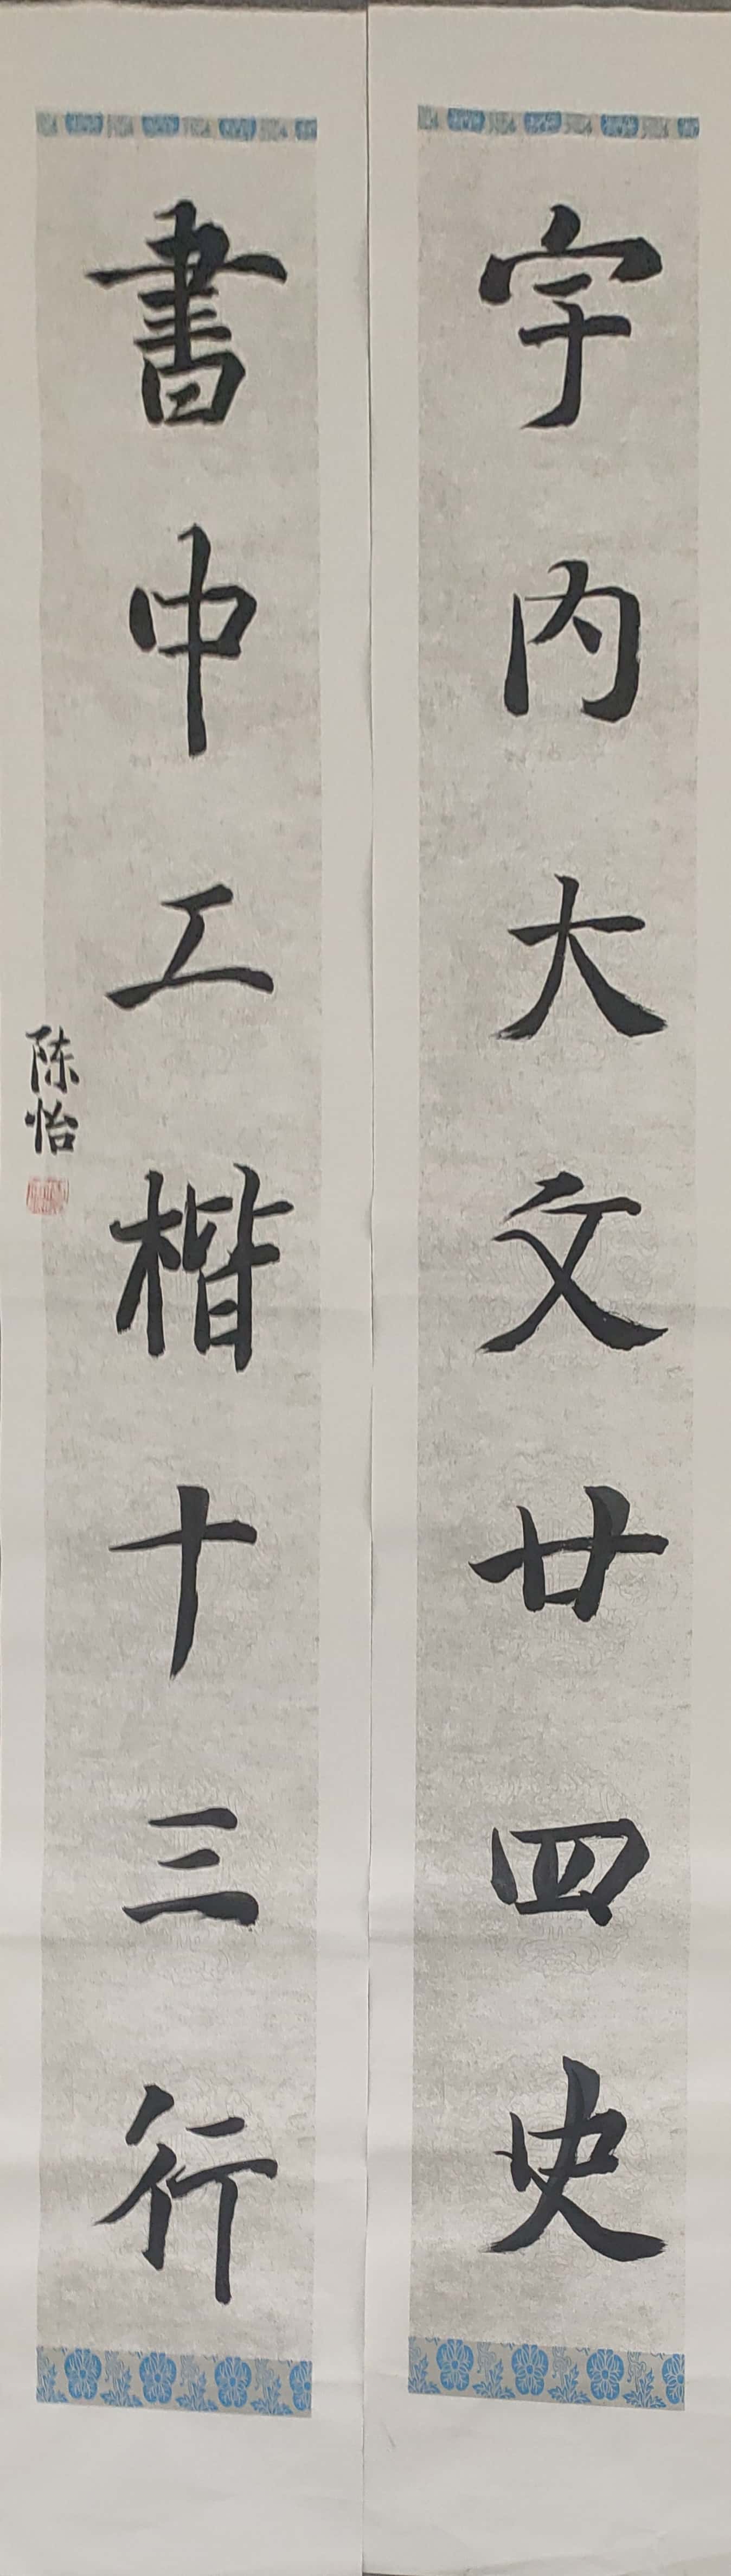 宇内大文廿四史
書中工楷十三行
陈怡